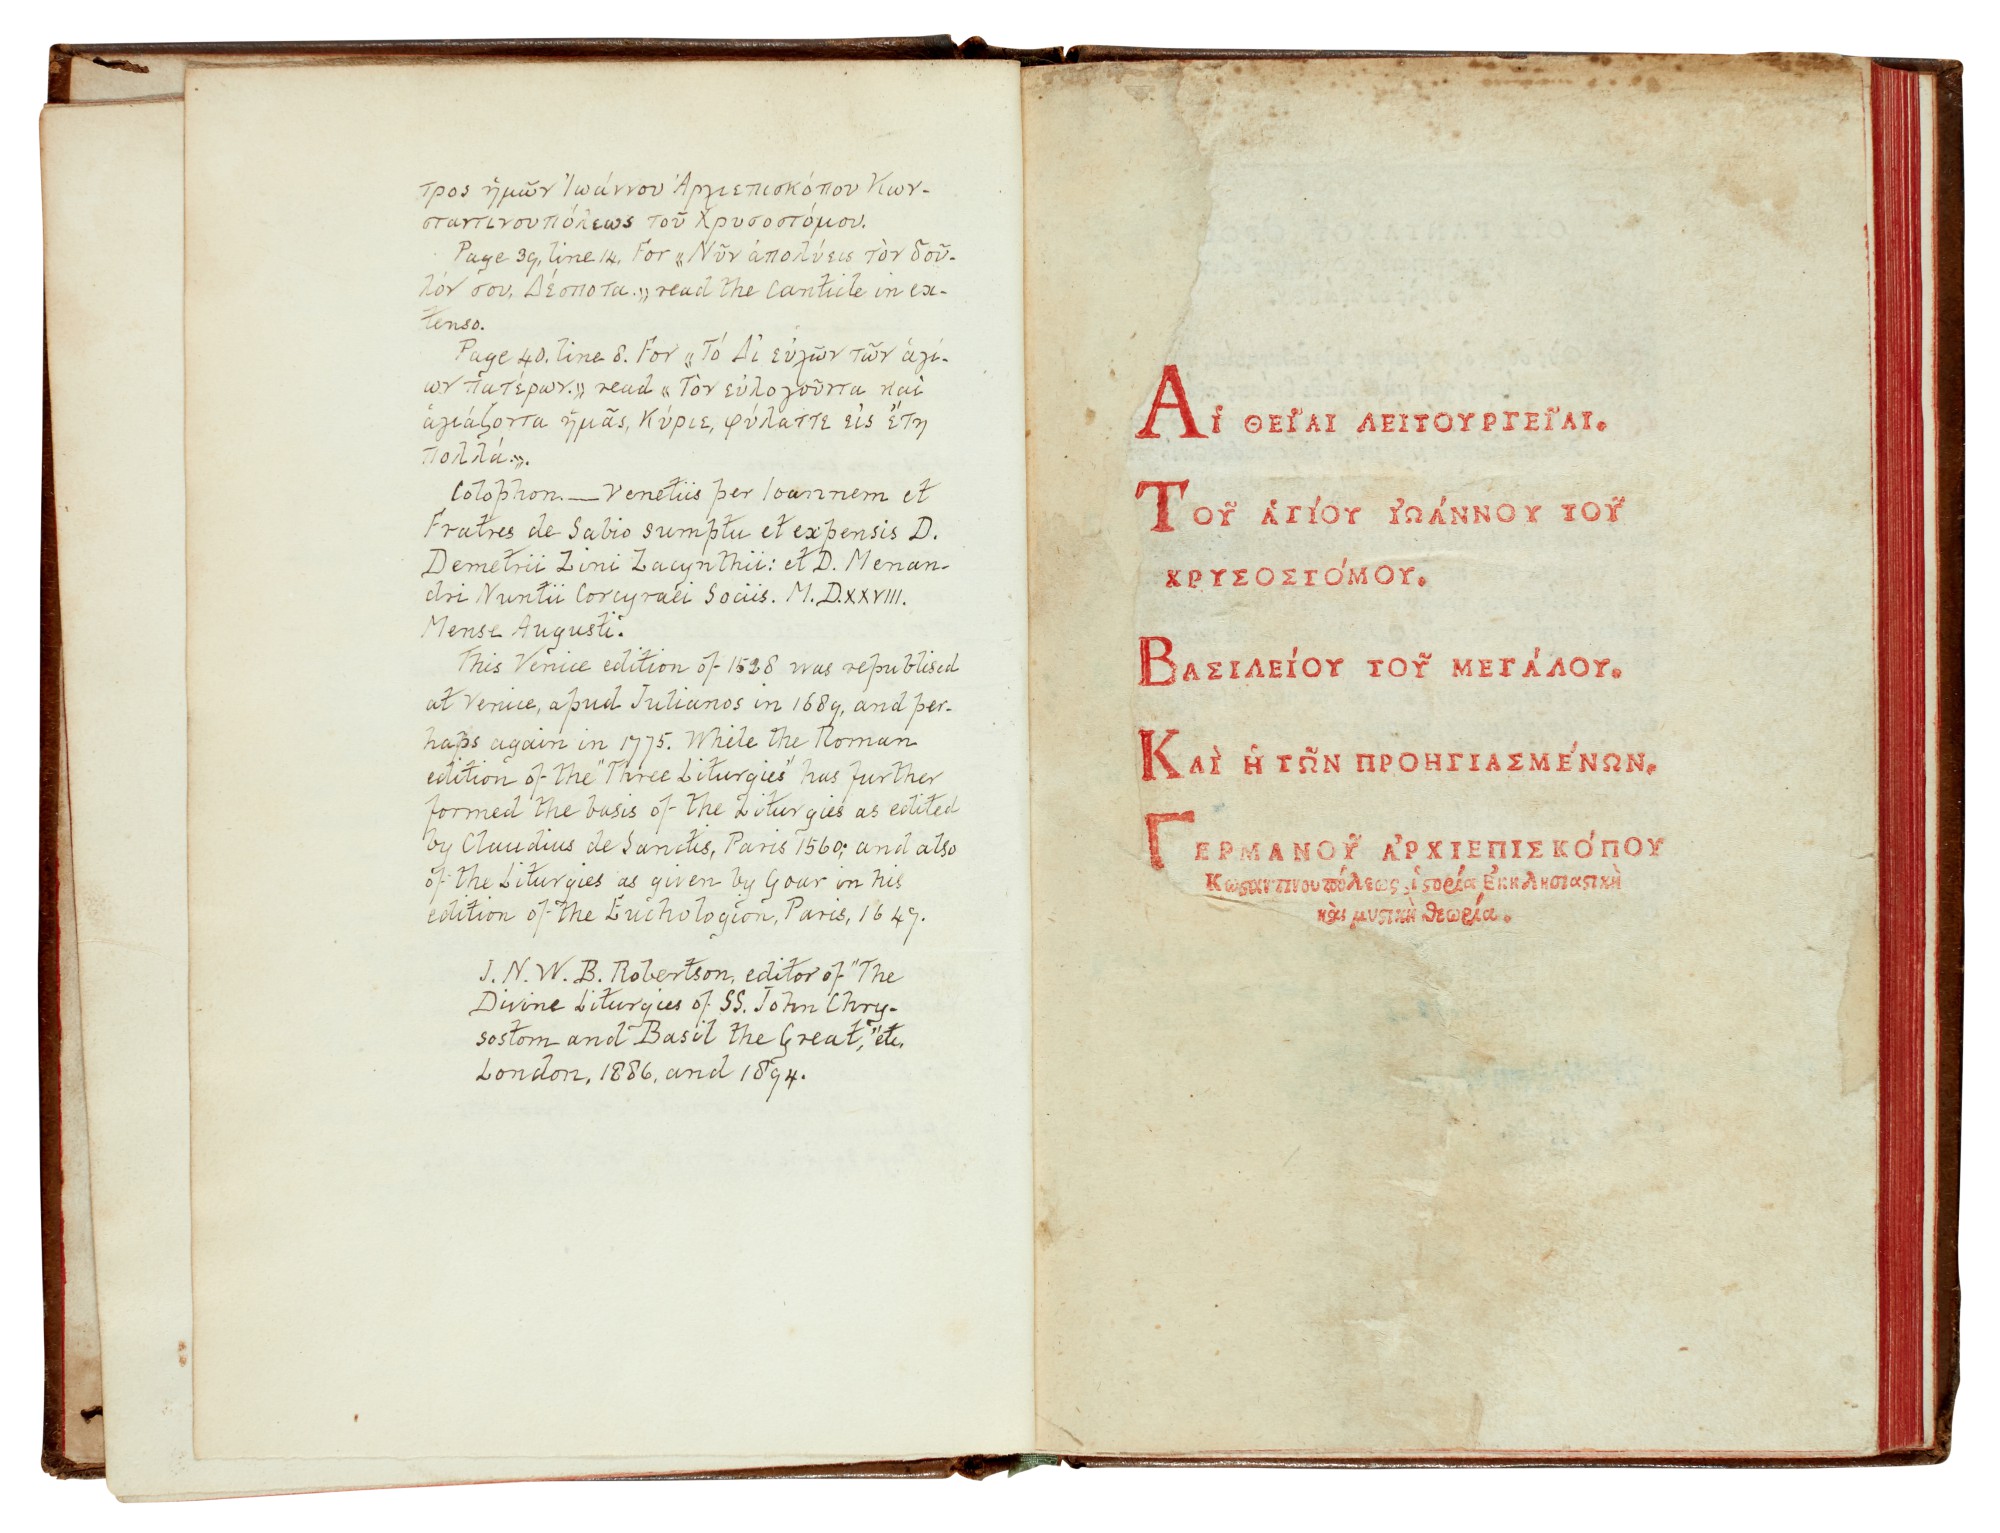 τρος ἡμῶν Ἰωάννου Ἀρχιεπισκόπου Κων-
σταντινουπόλεως τοῦ Χρυσοστόμου.
Page 39, line 14. For „Νῦν ἀπολύεις τὸν δοῦ-
λόν σου, Δέσποτα.„ read the Canticle in ex-
tenso.
Page 40, line 8. For „Τό Δἰ εὐχῶν τῶν ἁγί-
ων πατέρων.„ read „Τὸν εὐλογοῦντα καὶ
ἁγιάζοντα ἡμᾶς, Κύριε, φύλαττε εἰς ἔτη
πολλά.„.
Colophon.— Venetiis per Ioannem et
Fratres de Sabio sumptu et expensis D.
Demetrii Zini Zacynthii: et D. Menan-
dri Nuntii Corcyraei Sociis. M.D.XXVIII.
Mense Augusti.
This Venice edition of 1528 was republised
at Venice, apud Julianos in 1689, and per-
haps again in 1775. While the Roman
edition of the "Three Liturgies" has further
formed the basis of the Liturgies as edited
by Claudius de Sanctis, Paris 1560; and also
of the Liturgies as given by Goar in his
edition of the Euchologion, Paris, 1647.
J. N. W. B. Robertson, editor of "The
Divine Liturgies of SS. John Chry-
sostom and Basil the Great," etc.
London, 1886, and 1894.
Αἱ ΘΕῖΑΙ ΛΕΙΤΟΥΡΓΕῖΑΙ.
ΤΟΥ͂ ἉΓΊΟΥ ἸΩΆΝΝΟΥ ΤΟΥ͂
ΧΡΥΣΟΣΤΌΜΟΥ.
ΒΑΣΙΛΕΊΟΥ ΤΟΥ͂ ΜΕΓΆΛΟΥ.
ΚΑῚ Ἡ ΤΩ͂Ν ΠΡΟΗΓΙΑΣΜΈΝΩΝ.
ΓΕΡΜΑΝΟΥ͂ ἈΡΧΙΕΠΙΣΚΌΠΟΥ
Κωσαντινουπόλεως ἱστορία Ἐκκλησιαστικὴ
καὶ μυστικὴ θεωρία.